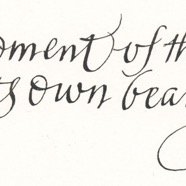 dment of th
ts own bea